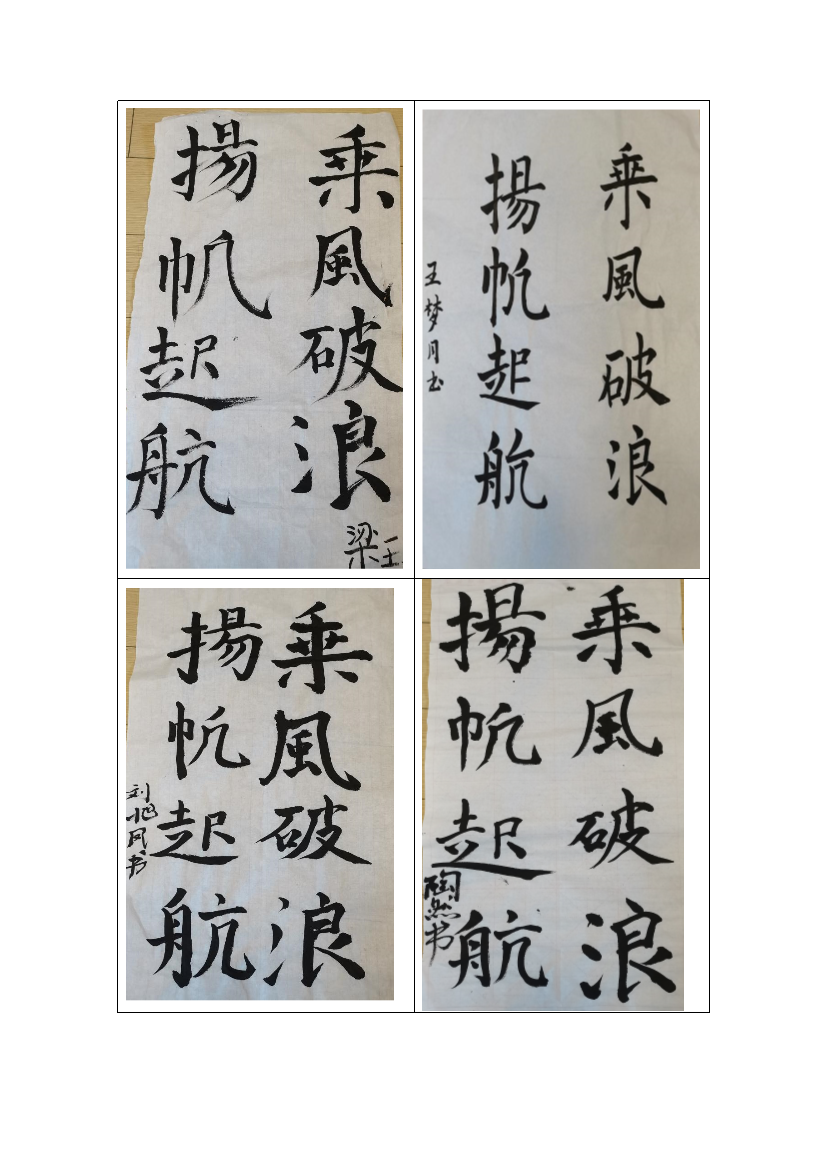 乘風破浪
揚帆起航
梁
乘風破浪
揚帆起航
王梦月书
乘風破浪
揚帆起航
刘旭风书
乘風破浪
揚帆起航
陶然书